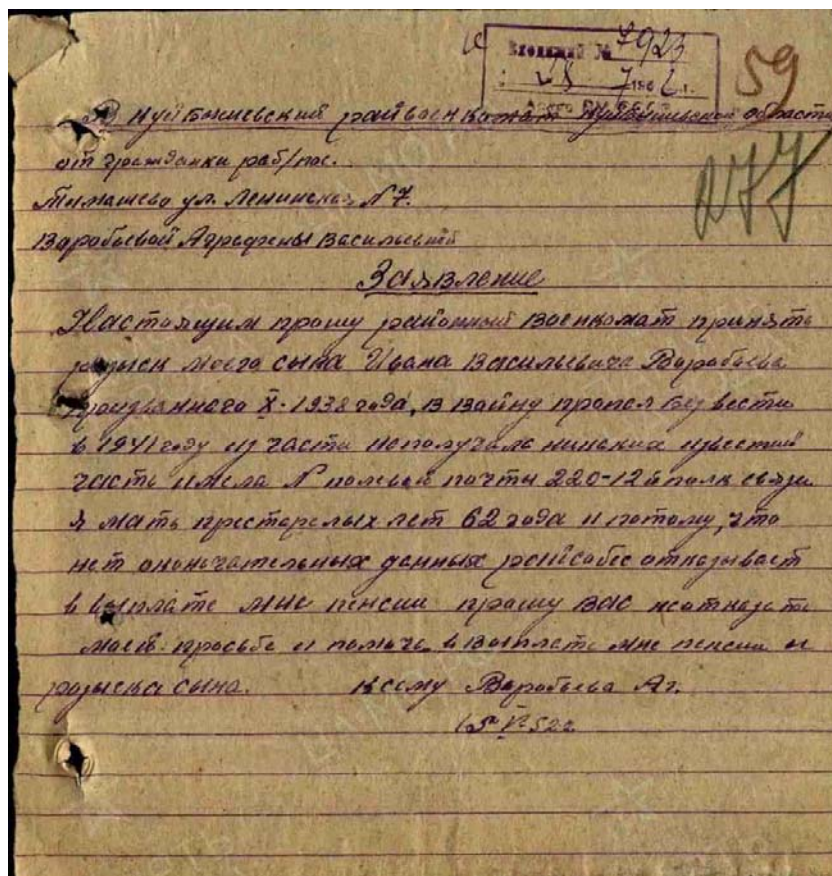 Входящий № 7923
59
277
В Куйбышевский райвоенкомат Куйбышевской области
от гражданки раб/пос.
Тимашево ул. Ленинская N 7.
Варобьевой Агрефены Васильевной
Заявление
Настоящим прошу районный военкомат принять
розыск моего сына Ивана Васильевича Варобьева
призванного X-1938 года, в войну пропал без вести
в 1941 году из части неполучала никаких известий
часть имела N полевой почты 220-12й полк связи
Я мать престарелых лет 62 года и потому, что
нет окончательных данных райсобес отказывает
в выплате мне пенсии прошу вас неотказать
моей просьбе и помочь в выплате мне пенсии и
розыска сына. к сему Варобьева Аг.